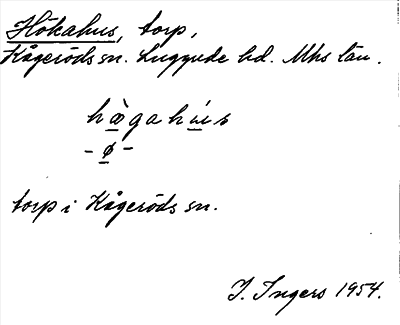 Hökahus, torp,
Kågeröds sn. Luggude hd. Mhs län.
hø̀gahús
- ø -
torp i Kågeröds sn.
I. Ingers 1954.